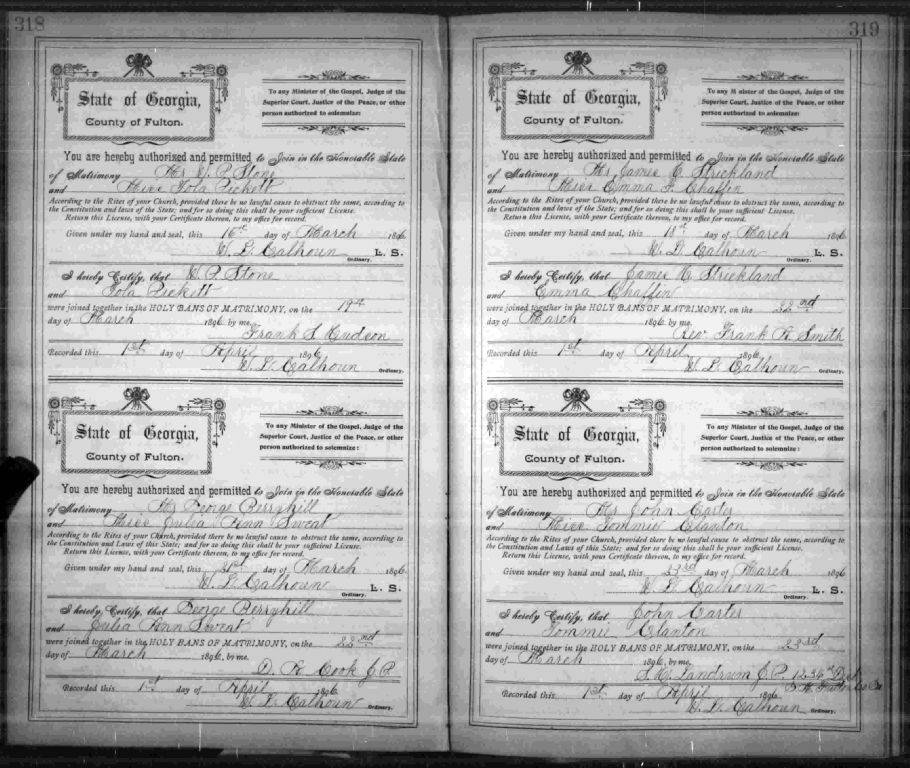 318
State of Georgia,
County of Fulton.
To any Minister of the Gospel, Judge of the
Superior Court, Justice of the Peace, or other
person authorized to solemnize:
You are hereby authorized and permitted to Join in the Honorable State
of Matrimony Mr W. P. Stone
and Miss Iola Pickett
According to the Rites of your Church, provided there be no lawful cause to obstruct the same, according to
the Constitution and laws of the State; and for so doing this shall be your sufficient License.
Return this License, with your Certificate thereon, to my office for record.
Given under my hand and seal, this 16th day of March 1896
W. L. Calhoun L. S.
Ordinary.
I hereby Certify, that W. P. Stone
and Iola Pickett
were joined together in the HOLY BANS OF MATRIMONY, on the 19th
day of March 1896 by me,
Frank S. Hudson
Recorded this 1st day of April 1896
W. L. Calhoun Ordinary.
State of Georgia,
County of Fulton.
To any Minister of the Gospel, Judge of the
Superior Court, Justice of the Peace, or other
person authorized to solemnize:
You are hereby authorized and permitted to Join in the Honorable State
of Matrimony Mr George Berryhill
and Miss Julia Ann Sweat
According to the Rites of your Church, provided there be no lawful cause to obstruct the same, according to
the Constitution and Laws of this State; and for so doing this shall be your sufficient License.
Return this License, with your Certificate thereon, to my office for record.
Given under my hand and seal, this 21st day of March 1896
W. L. Calhoun L. S.
Ordinary.
I hereby Certify, that George Berryhill
and Julia Ann Sweat
were joined together in the HOLY BANS OF MATRIMONY, on the 22nd
day of March 1896, by me,
D. R. Cook J.P.
Recorded this 1st day of April 1896
W. L. Calhoun Ordinary.
319
State of Georgia,
County of Fulton.
To any Minister of the Gospel, Judge of the
Superior Court, Justice of the Peace, or other
person authorized to solemnize:
You are hereby authorized and permitted to Join in the Honorable State
of Matrimony Mr James C. Strickland
and Miss Emma F. Chaffin
According to the Rites of your Church, provided there be no lawful cause to obstruct the same, according to
the Constitution and laws of this State; and for so doing this shall be your sufficient License.
Return this License, with your Certificate thereon, to my office for record.
Given under my hand and seal, this day of March 1896
W. L. Calhoun L. S.
Ordinary.
I hereby Certify, that James C. Strickland
and Emma Chaffin
were joined together in the HOLY BANS OF MATRIMONY, on the 22nd
day of March 1896, by me,
Rev Frank R. Smith
Recorded this 1st day of April 1896
W. L. Calhoun Ordinary.
State of Georgia,
County of Fulton.
To any Minister of the Gospel, Judge of the
Superior Court, Justice of the Peace, or other
person authorized to solemnize:
You are hereby authorized and permitted to Join in the Honorable State
of Matrimony Mr John Carter
and Miss Tommie Clanton
According to the Rites of your Church, provided there be no lawful cause to obstruct the same, according to
the Constitution and Laws of this State; and for so doing this shall be your sufficient License.
Return this License, with your Certificate thereon, to my office for record.
Given under my hand and seal, this 23rd day of March 1896
W. L. Calhoun L. S.
Ordinary.
I hereby Certify, that John Carter
and Tommie Clanton
were joined together in the HOLY BANS OF MATRIMONY, on the 23rd
day of March 1896, by me,
S. H. Landrum J.P. 1234th Dist
Recorded this 1st day of April 1896
W. L. Calhoun Ordinary.